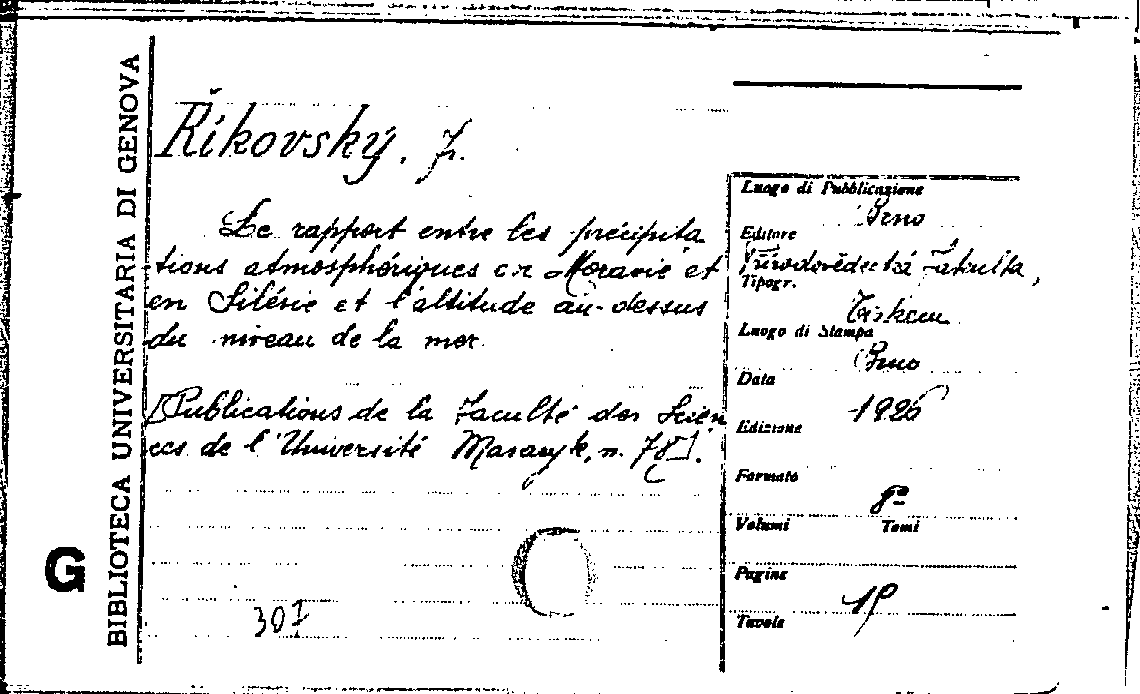 BIBLIOTECA UNIVERSITARIA DI GENOVA
G
Říkovský, F.
Le rapport entre les précipita
tions atmosphériques en Moravie et
en Silésie et l'altitude au-dessus
du niveau de la mer.
[Publications de la Faculté des Scien
ces de l'Université Masaryk, n. 78].
30I
Luogo di Pubblicazione
Brno
Editore
Přírodovědecká Fakulta,
Tipogr.
Luogo di Stampa
Brno
Data
1926
Edizione
Formato
8º
Volumi Tomi
Pagine
Tavole